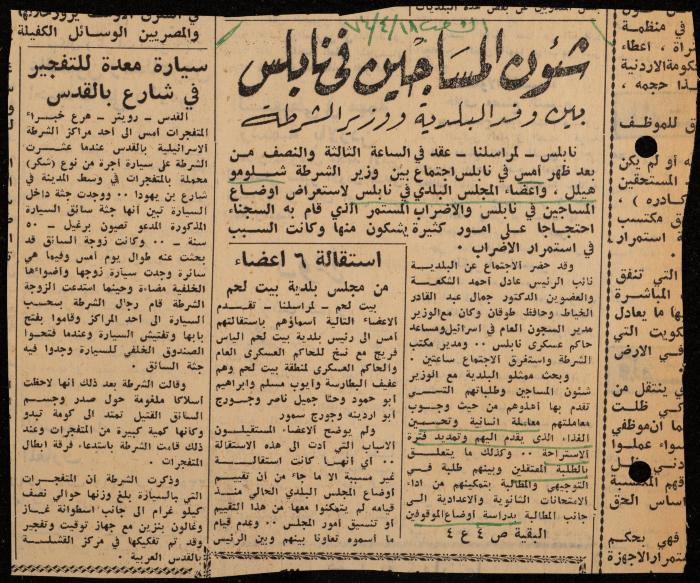 الشعب ٧٦/٤/١٨
شئون المساجين في نابلس
بين وفد البلدية ووزير الشرطة
نابلس - لمراسلنا - عقد في الساعة الثالثة والنصف من
بعد ظهر أمس في نابلس اجتماع بين وزير الشرطة شلومو
هيلل ، واعضاء المجلس البلدي في نابلس لاستعراض اوضاع
المساجين في نابلس والاضراب المستمر الذي قام به السجناء
احتجاجا على امور كثيرة يشكون منها وكانت السبب
في استمرار الاضراب .
وقد حضر الاجتماع عن البلدية
نائب الرئيس عادل أحمد الشكعة
والعضوين الدكتور جمال عبد القادر
الخياط وحافظ طوقان وكان مع الوزير
مدير السجون العام في اسرائيل ومساعد
حاكم عسكري نابلس .. ومدير مكتب
الشرطة واستغرق الاجتماع ساعتين .
وبحث ممثلو البلدية مع الوزير
شئون المساجين وطلباتهم التي
تقدم بها أهلوهم من حيث وجوب
معاملتهم معاملة انسانية وتحسين
الغذاء الذي يقدم اليهم وتمديد فترة
الاستراحة .. وكذلك ما يتعلق
بالطلبة المعتقلين وبينهم طلبة في
التوجيهي والمطالبة بتمكينهم من اداء
الامتحانات الثانوية والاعدادية الى
جانب المطالبة بدراسة اوضاع الموقوفين
البقية ص ٤ ع ٤
استقالة ٦ اعضاء
من مجلس بلدية بيت لحم
بيت لحم - لمراسلنا - تقدم
الاعضاء التالية أسماؤهم باستقالتهم
امس الى رئيس بلدية بيت لحم الياس
فريج مع نسخ للحاكم العسكري العام
والحاكم العسكري لمنطقة بيت لحم وهم
عفيف البطارسة وايوب مسلم وابراهيم
ابو حمود وحنا جميل ناصر وجورج
ابو اردينه وجورج سمور
ولم يوضح الأعضاء المستقيلون
الاسباب التي أدت الى هذه الاستقالة
.. أي انها كانت استقالة
غير مسببة الا ما جاء من ان تقييم
اوضاع المجلس البلدي الحالي منذ
قيامه لم يتمكنوا معها من هذا التقييم
أو تنسيق أمور المجلس .. وعدم قيام
ما اسموه تعاونا بينهم وبين الرئيس
والمصريين الوسائل الكفيلة
سيارة معدة للتفجير
في شارع بالقدس
القدس - رويتر - هرع خبراء
المتفجرات أمس الى احد مراكز الشرطة
الاسرائيلية بالقدس عندما عثرت
الشرطة على سيارة أجرة من نوع (شكر)
محملة بالمتفجرات في وسط المدينة في
شارع بن يهودا .. ووجدت جثة داخل
السيارة تبين أنها جثة سائق السيارة
المذكورة المدعو تصيون برغيل - ٥٠
سنة - .. وكانت زوجة السائق قد
بحثت عنه طوال يوم أمس وفيما هي
سائرة وجدت سيارة زوجها وأضواءها
الخلفية مضاءة وحينما استدعت الزوجة
الشرطة قام رجال الشرطة بسحب
السيارة الى احد المراكز وقاموا بفتح
بابها وتفتيش السيارة وعندما فتحوا
الصندوق الخلفي للسيارة وجدوا فيه
جثة السائق .
وقالت الشرطة بعد ذلك انها لاحظت
أسلاكا ملغومة حول صدر وجسم
السائق القتيل تمتد الى كومة تبدو
وكأنها كمية كبيرة من المتفجرات وعند
ذلك قامت الشرطة باستدعاء فرقة ابطال
المتفجرات .
وذكرت الشرطة ان المتفجرات
التي بالسيارة بلغ وزنها حوالي نصف
كيلو غرام الى جانب اسطوانة غاز
وغالون بنزين مع جهاز توقيت وتفجير
وقد تم تفكيكها في مركز القشلة
بالقدس العربية .
في منظمة
للموظف
المستحقين
مكتسب
استمرار
التي تنفق
المباشرة
ما يعادل
في الارض
ينتقل من
اساس الحق
فهي بحكم